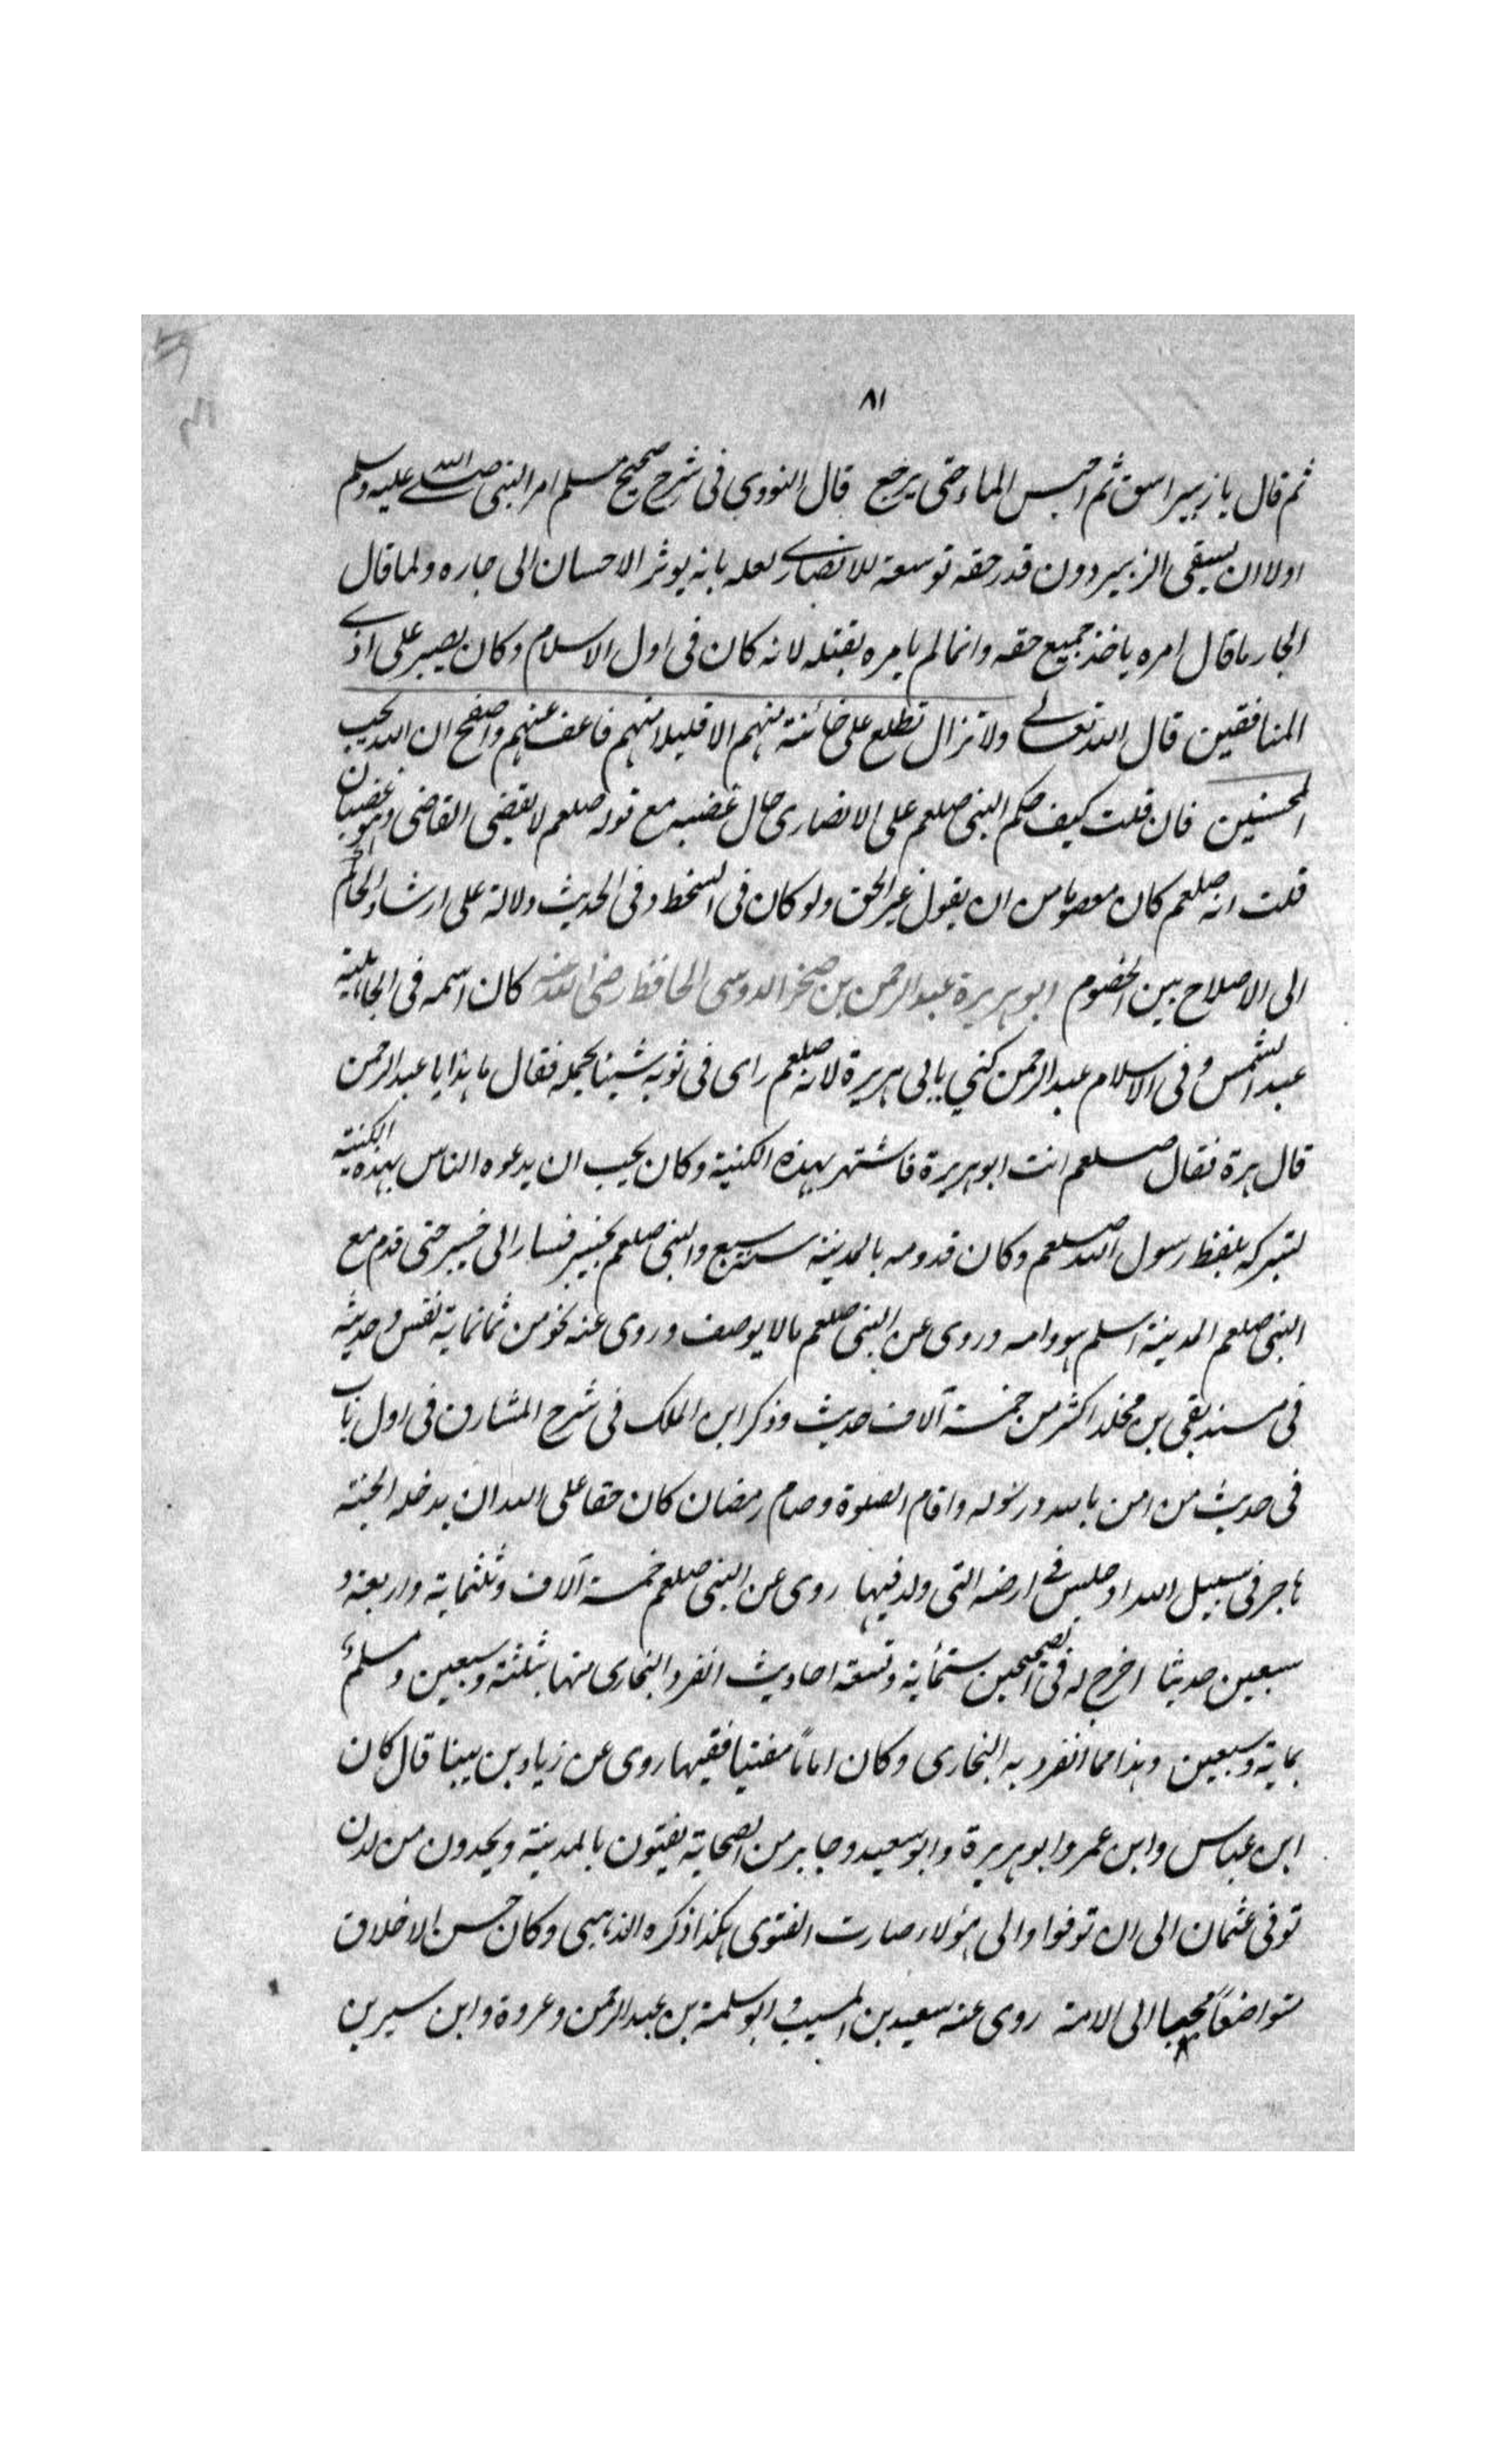 ٨١
ثم قال يا زبير اسق ثم احبس الماء حتى يرجع قال النووي فى شرح صحيح مسلم امر النبى صلى الله عليه وسلم
اولا ان يسقى الزبير دون قدر حقه توسعة للانصارى لعله بانه يوثر الاحسان الى جاره ولما قال
الجار ما قال امره ياخذ جميع حقه وانما لم يامره بقتله لانه كان فى اول الاسلام وكان يصبر على اذى
المنافقين قال الله تعالى ولا تزال تطلع على خائنة منهم الا قليلا منهم فاعف عنهم واصفح ان الله يحب
المحسنين فان قلت كيف حكم النبى صلعم على الانصارى حال غضبه مع قوله صلعم لا يقضى القاضى وهو غضبان
قلت انه صلعم كان معصوما من ان يقول غير الحق ولو كان فى السخط وفى الحديث دلالة على ارشاد الحاكم
الى الاصلاح بين الخصوم ابو هريرة عبد الرحمن بن صخر الدوسى الحافظ رضى الله عنه كان اسمه فى الجاهلية
عبد الشمس وفى الاسلام عبد الرحمن كني بابى هريرة لانه صلعم راى فى ثوبه شيئا يحمله فقال ما هذا يا عبد الرحمن
قال هرة فقال صلعم انت ابو هريرة فاشتهر بهذه الكنية وكان يحب ان يدعوه الناس بهذه الكنية
لتبركه بلفظ رسول الله صلعم وكان قدومه بالمدينة سنة سبع والنبى صلعم بخيبر فسار الى خيبر حتى قدم مع
النبى صلعم المدينة اسلم هو وامه وروى عن النبى صلعم مالا يوصف وروى عنه نحو من ثمانماية نفس وحديثه
فى مسند بقى بن مخلد اكثر من خمسة آلاف حديث وذكر ابن الملك فى شرح المشارق فى اول باب
فى حديث من امن بالله ورسوله واقام الصلوة وصام رمضان كان حقا على الله ان يدخله الجنة
هاجر فى سبيل الله او جلس فى ارضه التى ولد فيها روى عن النبى صلعم خمسة آلاف وثلثماية واربعة و
سبعين حديثا اخرج له فى الصحيحين ستمائة وتسعة احاديث انفرد البخارى منها بثلثة وسبعين ومسلم
بماية وسبعين وهذا مما انفرد به البخارى وكان اماماً مفتيا فقيها روى عن زياد بن مينا قال كان
ابن عباس وابن عمر وابو هريرة وابو سعيد وجابر من الصحابة يفتون بالمدينة ويحدون من لدن
توفى عثمان الى ان توفوا والى هؤلاء صارت الفتوى هكذا ذكره الذهبى وكان حسن الاخلاق
متواضعاً محببا الى الامة روى عنه سعيد بن المسيب وابو سلمة بن عبد الرحمن وعروة وابن سيرين